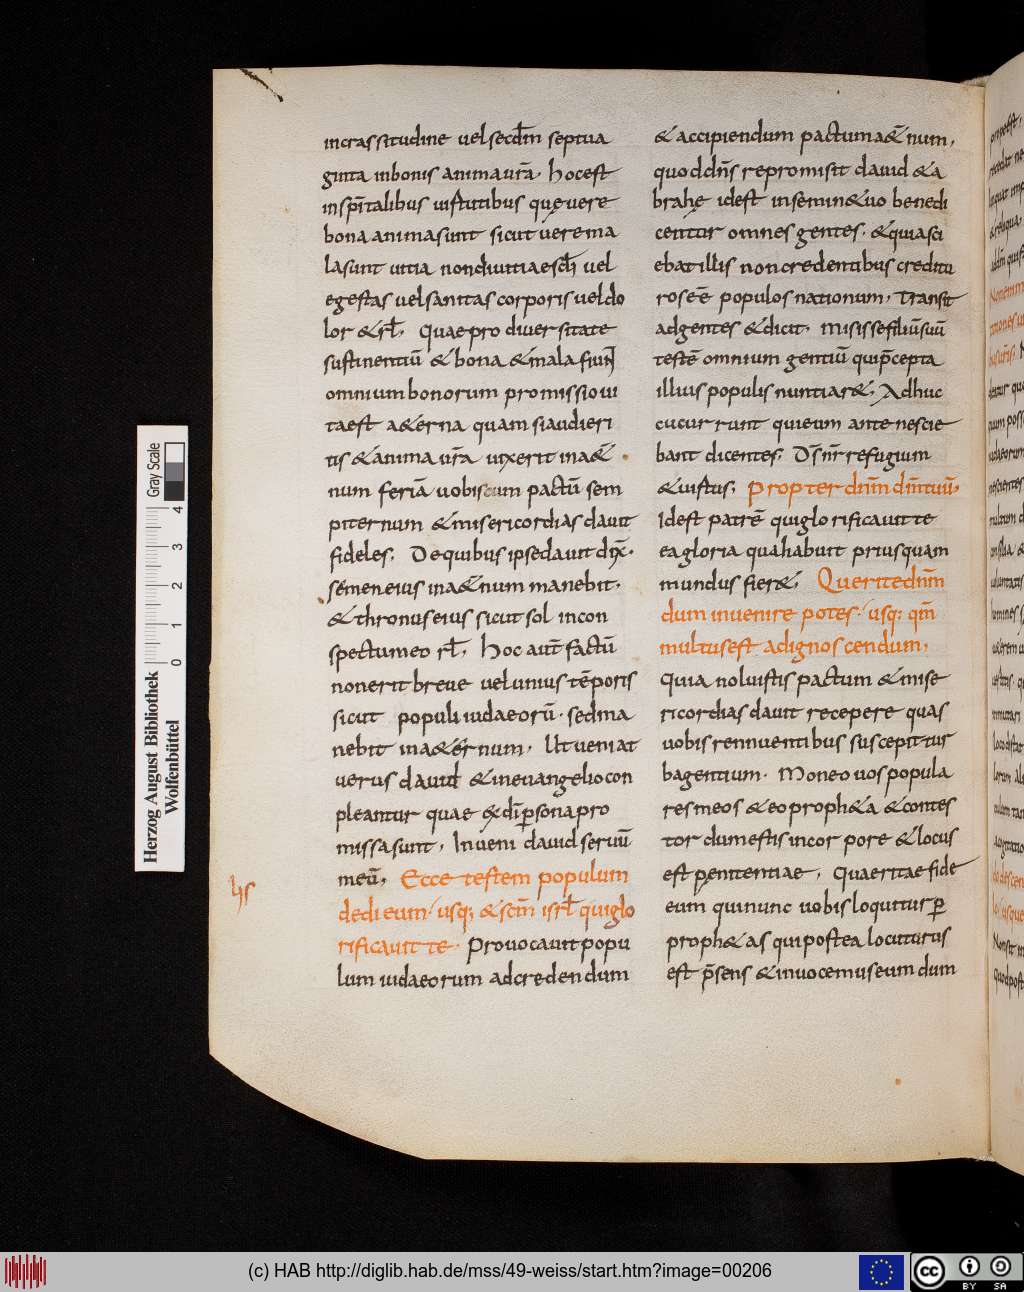 incrassitudine uelsecd̄m septua
ginta inbonis animaur̄a· hocest
insp̄italibus uirtutibus quęuere
bona animasunt sicut uerema
lasunt uitia nondiuitiaesc̄h uel
egestas uelsanitas corporis ueldo
lor &rł. Quaepro diuersitate
sustinentiū &bona &mala fiunt
omnium bonorum promissioui
taest a&erna quam siaudieri
tis &anima ur̄a uixerit ina&̄
num feriā uobiscum pactū sem
piternum &misericordias dauit
fideles; Dequibus ipsedauit dix̄·
semeneius ina&num manebit·
&thronuseius sicut sol incon
spectumeo rł, Hoc aut̄ factū
nonerit breue uelunius tēporis
sicut populi iudaeorū· sedma
nebit ina&ernum, Ut ueniat
uerus dauid &ineuangeliocon
pleantur quae exdīp̱sonapro
missasunt, Inueni dauid seruū
meū, Ecce testem populum
hs
dedi eum· usq; &scm̄ isrł quiglo
rificauit te· Prouocauit popu
lum iudaeorum adcredendum
&accipiendum pactuma&̄num,
quod dn̄s repromisit dauid &a
brahę idest insemin&uo benedi
centur omnes gentes· &quiasci
ebat illis noncredentibus creditu
rose ē populos nationum, Transit
adgentes &dicit· misissefiliūsuū
testē omnium gentiū quip̄cepta
illius populis nuntiar&, Adhuc
cucurrunt quieum ante nescie
bant dicentes; Ds̄ nr̄ refugium
&uirtus; Propter dn̄m dm̄tuū,
Idest patrē quiglorificauit te
eagloria quāhabuit priusquam
mundus fier&, Querite dn̄m
dum inuenire potes· usq; qm̄
multusest adignoscendum,
Quia noluistis pactum &mise
ricordias dauit recepere quas
uobis rennuentibus suscepit tur
bagentium· Moneo uos popula
resmeos &eoproph&a &contes
tor dumestis incorpore &locus
est penitentiae, Quaeritaefide
eum quinunc uobisloquitur p̱
proph&as quipostea locuturus
est p̄sens &inuocemuseum dum
Herzog August Bibliothek
Wolfenbüttel
0 1 2 3 4
Gray Scale
(c) HAB http://diglib.hab.de/mss/49-weiss/start.htm?image=00206
cc BY SA